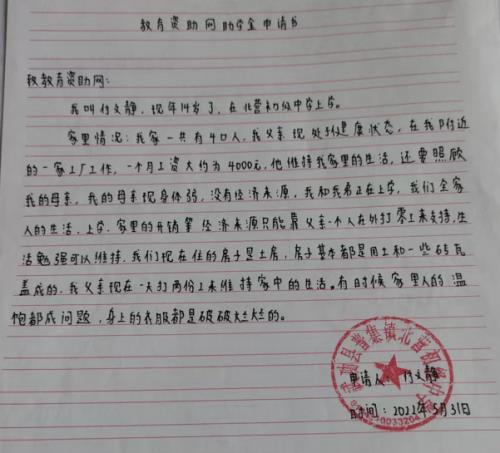 教育资助网助学金申请书
致教育资助网:
我叫付文静,现年14岁了,在北营初级中学上学。
家里情况:我家一共有4口人,我父亲现处于健康状态,在我附近
的一家工厂工作,一个月工资大约为4000元,他维持我家里的生活,还要照顾
我的母亲,我的母亲现身体弱,没有经济来源,我和我哥正在上学,我们全家
人的生活,上学,家里的开销等经济来源只能靠父亲一个人在外打零工来支持,生
活勉强可以维持,我们现在住的房子是土房,房子基本都是用土和一些砖瓦
盖成的,我父亲现在一天打两份工来维持家中的生活。有时候家里人的温
饱都成问题,身上的衣服都是破破烂烂的。
申请人:付文静
时间:2022年5月31日
集镇北营初级中学